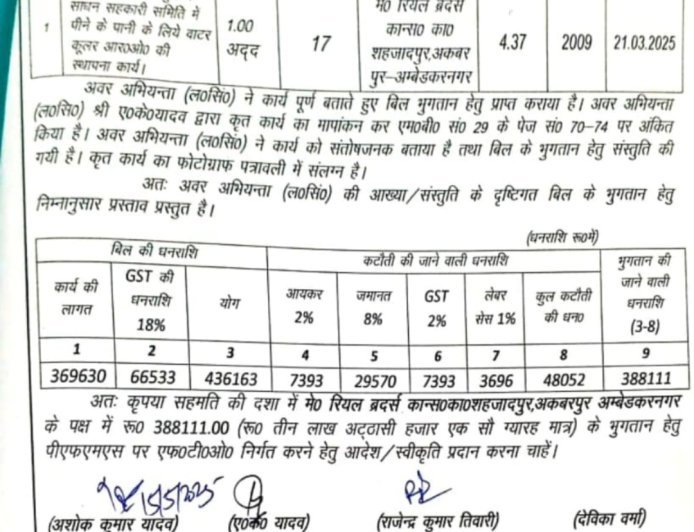 साधन सहकारी समिति में
पीने के पानी के लिये वाटर
कूलर आर०ओ० की
स्थापना कार्य।
1
1.00
अदद
17
मे० रियल ब्रदर्स
कान्स० का०
शहजादपुर,अकबर
पुर-अम्बेडकरनगर
4.37
2009
21.03.2025
अवर अभियन्ता (ल०सिं०) ने कार्य पूर्ण बताते हुए बिल भुगतान हेतु प्राप्त कराया है। अवर अभियन्ता
(ल०सिं०) श्री ए०के०यादव द्वारा कृत कार्य का मापांकन कर एम०बी० सं० 29 के पेज सं० 70-74 पर अंकित
किया है। अवर अभियन्ता (ल०सिं०) ने कार्य को संतोषजनक बताया है तथा बिल के भुगतान हेतु संस्तुति की
गयी है। कृत कार्य का फोटोग्राफ पत्रावली में संलग्न है।
अतः अवर अभियन्ता (ल०सिं०) की आख्या/संस्तुति के दृष्टिगत बिल के भुगतान हेतु
निम्नानुसार प्रस्ताव प्रस्तुत है।
(धनराशि रू०में)
बिल की धनराशि
कटौती की जाने वाली धनराशि
भुगतान की
जाने वाली
धनराशि
(3-8)
कार्य की
लागत
GST की
धनराशि
18%
योग
आयकर
2%
जमानत
8%
GST
2%
लेबर
सेस 1%
कुल कटौती
की धन०
1 2 3 4 5 6 7 8 9
369630 66533 436163 7393 29570 7393 3696 48052 388111
अतः कृपया सहमति की दशा में मे० रियल ब्रदर्स कान्स०का०शहजादपुर,अकबरपुर अम्बेडकरनगर
के पक्ष में रू० 388111.00 (रू० तीन लाख अट्ठासी हजार एक सौ ग्यारह मात्र) के भुगतान हेतु
पीएफएमएस पर एफ०टी०ओ० निर्गत करने हेतु आदेश/स्वीकृति प्रदान करना चाहें।
(अशोक कुमार यादव) (ए०के० यादव) (राजेन्द्र कुमार तिवारी) (देविका वर्मा)